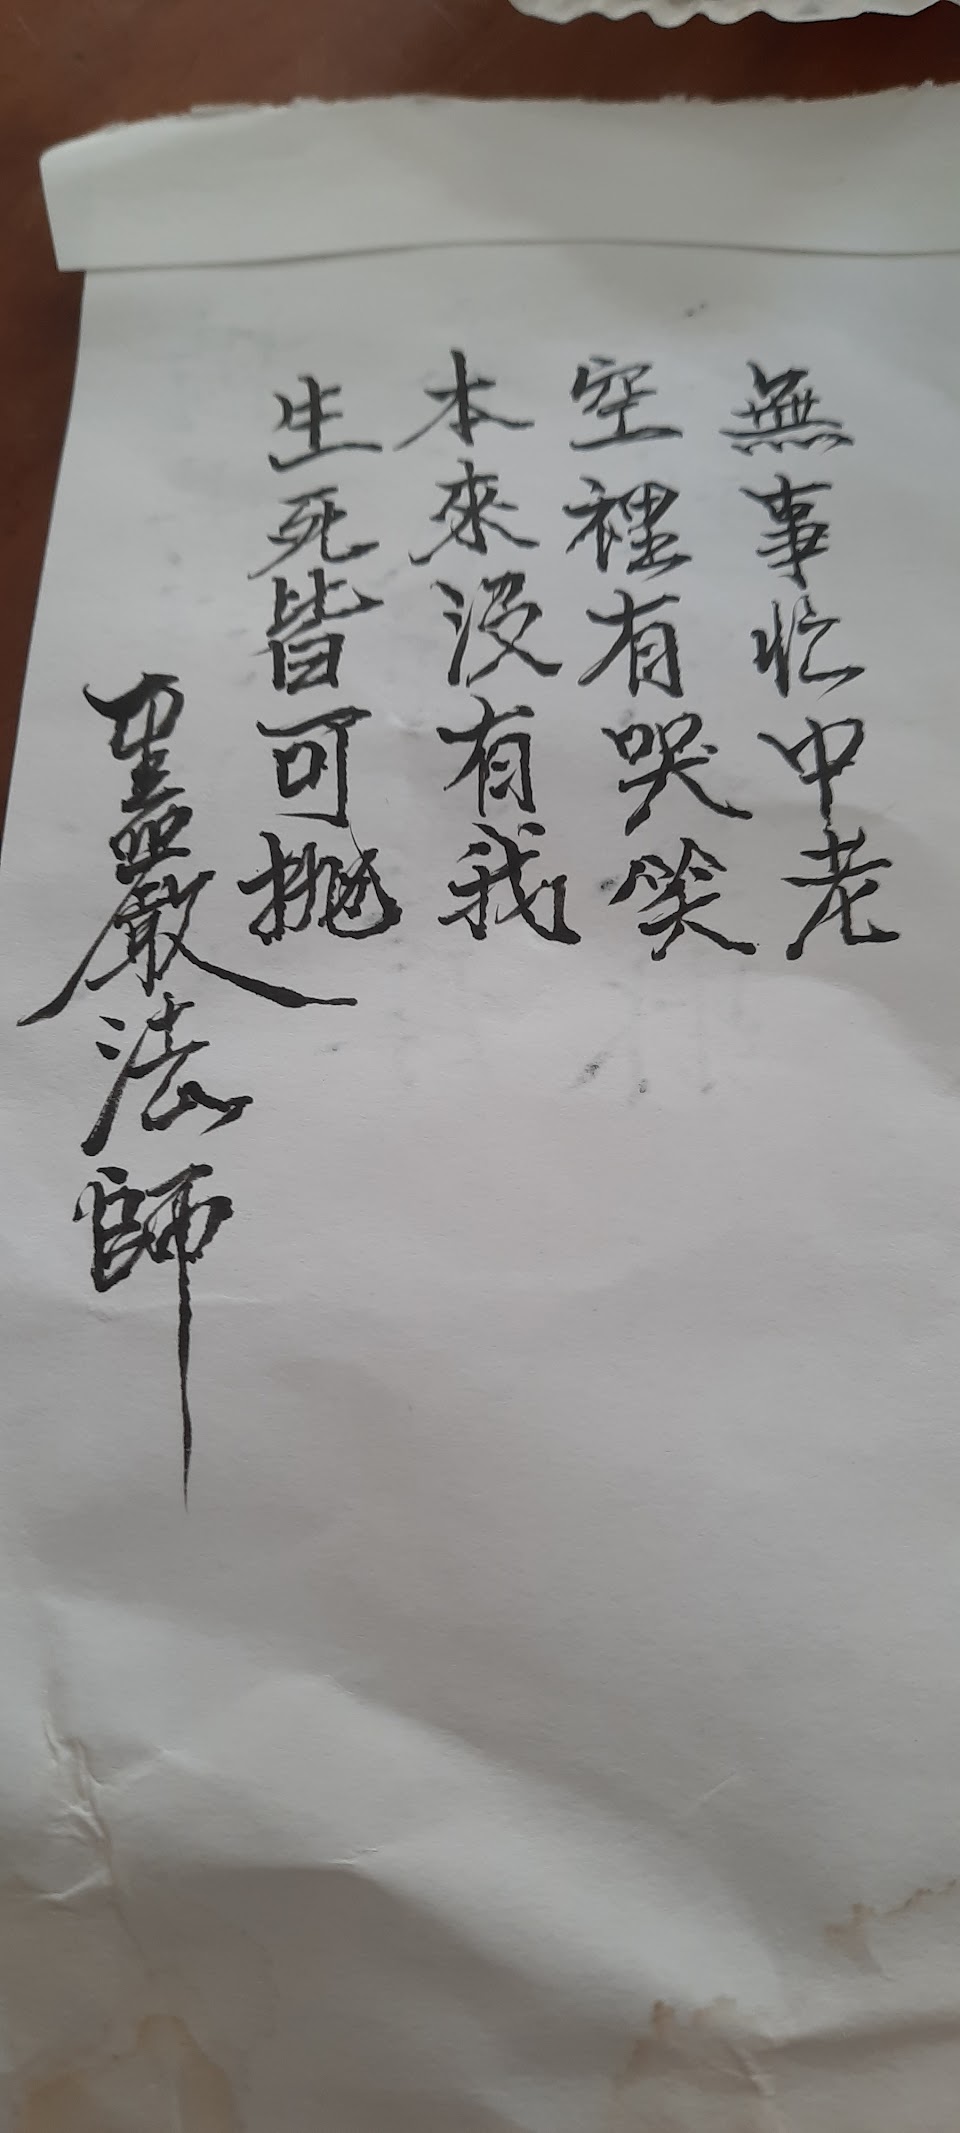 無事忙中老
空裡有哭笑
本來沒有我
生死皆可拋
聖嚴法師